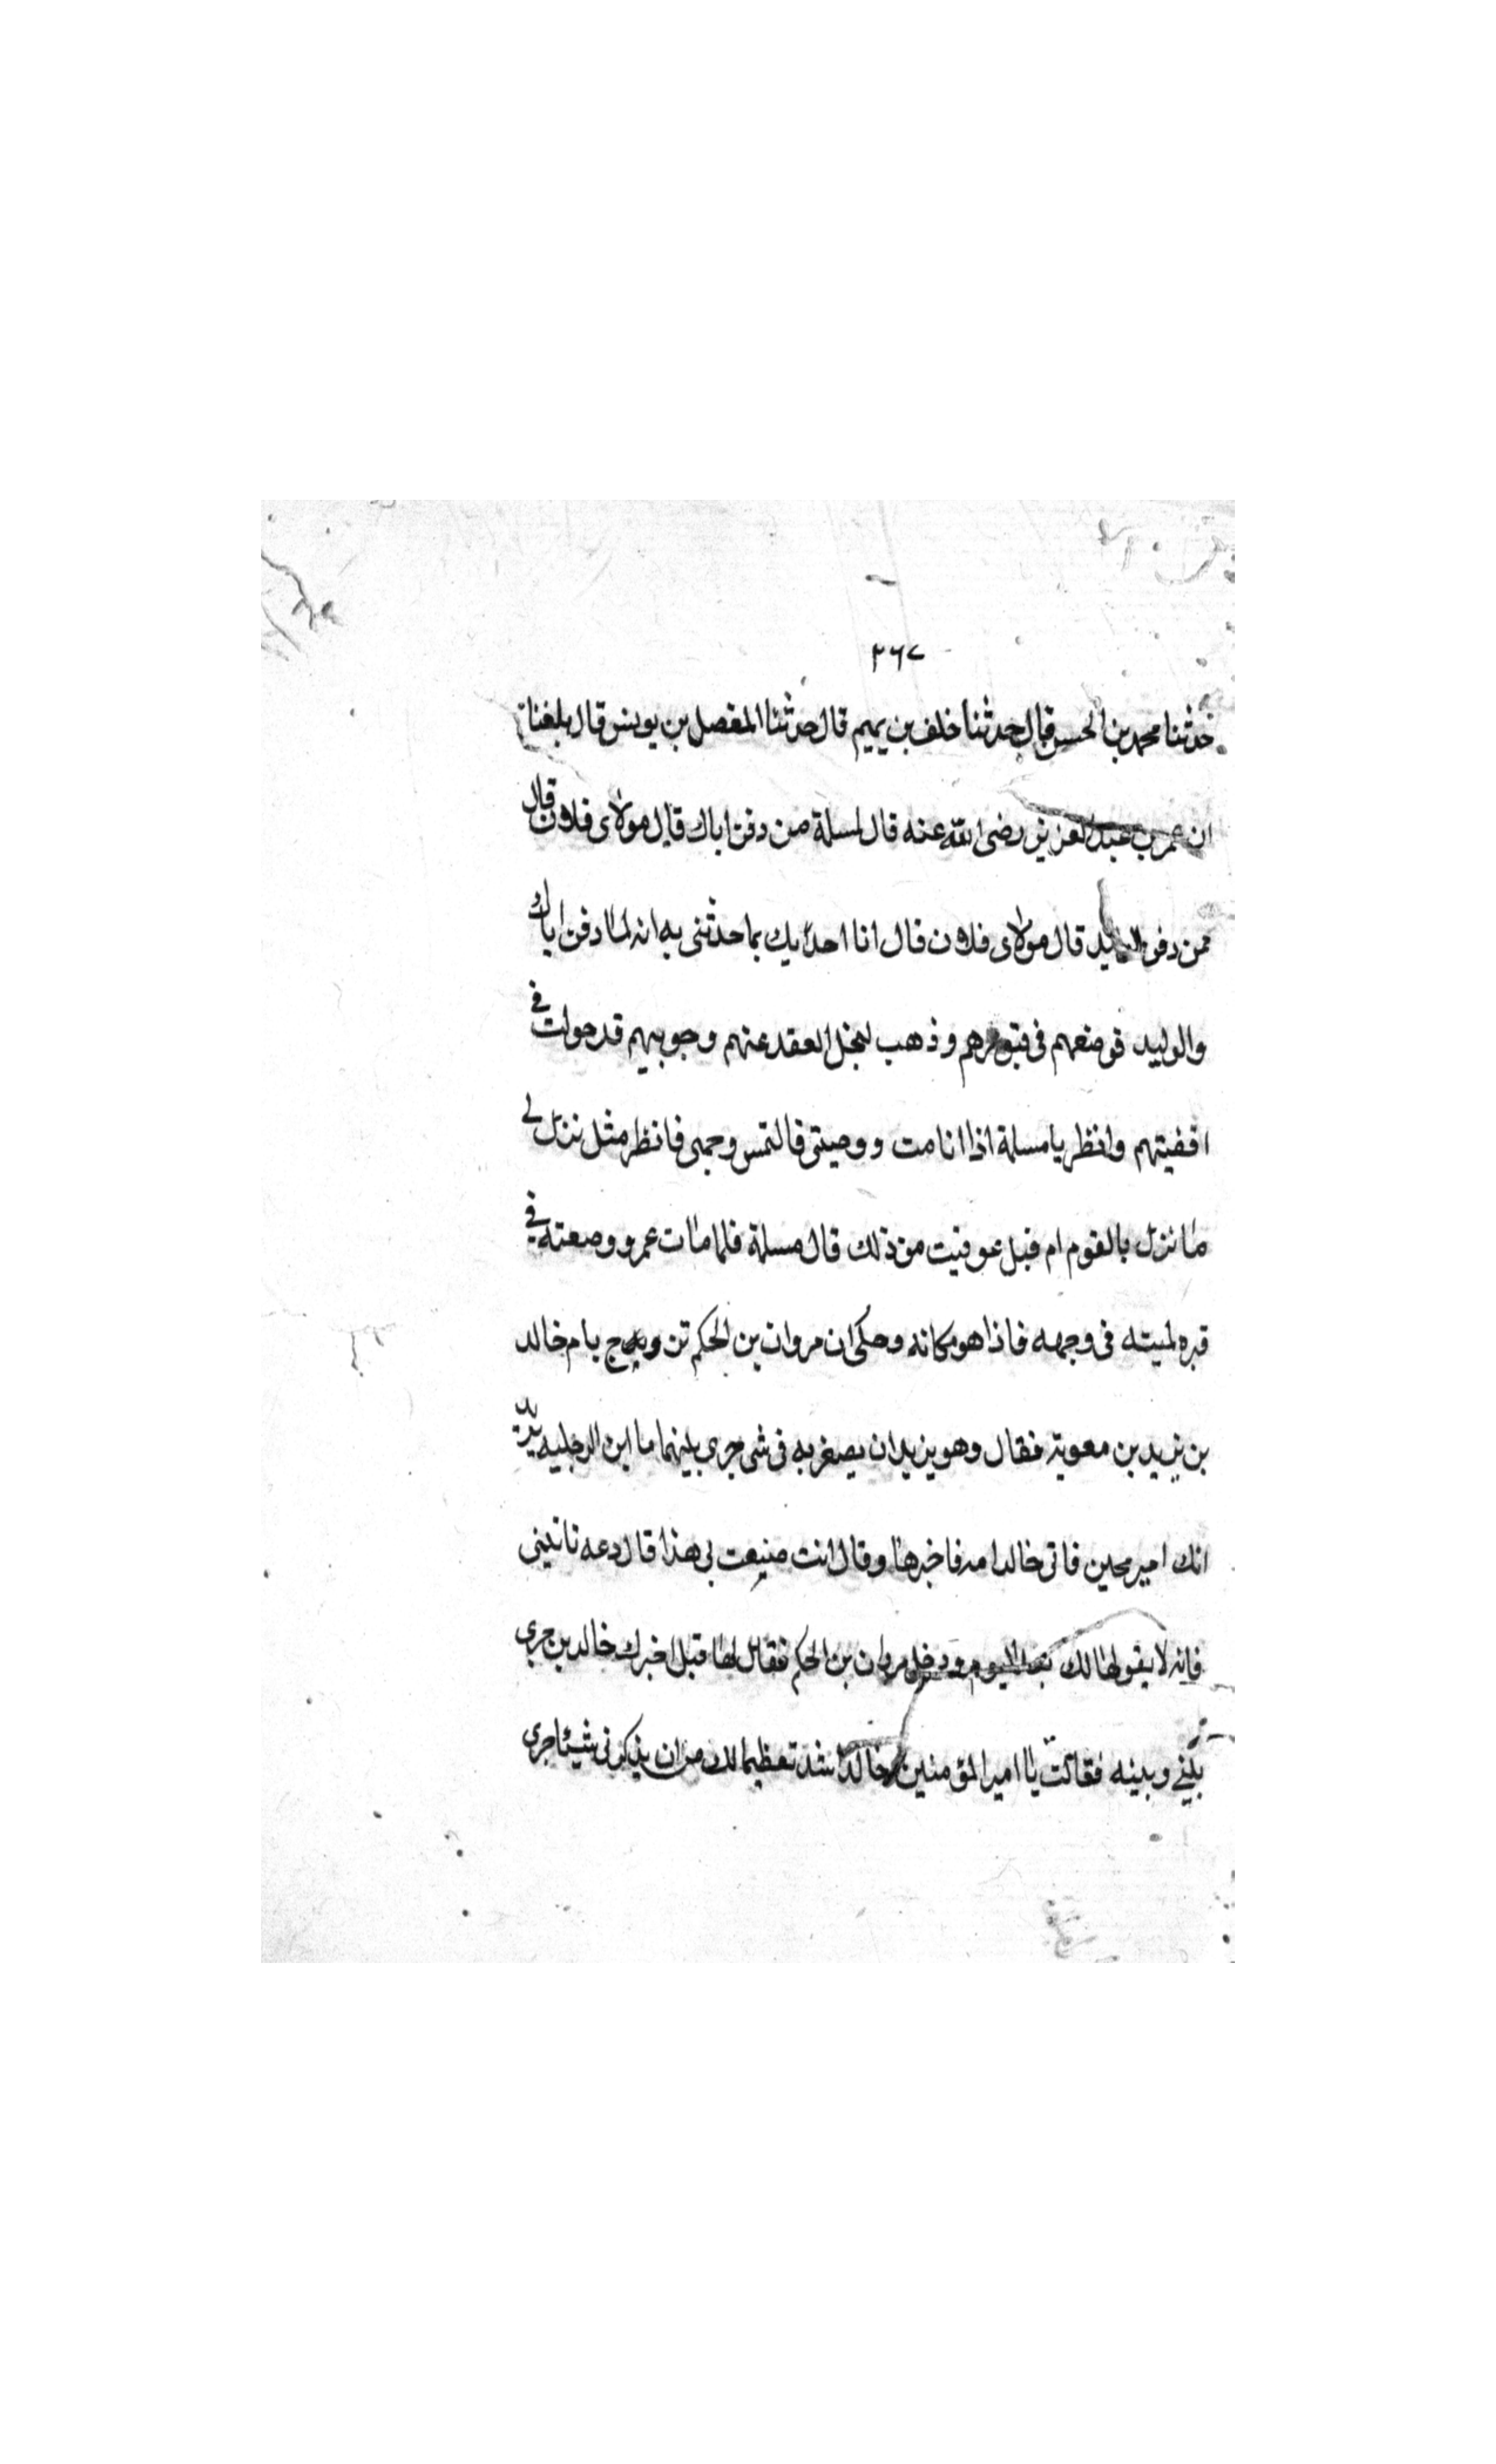 ٢٦٧
حدثنا محمد بن الحسن قال حدثنا خلف بن تميم قال حدثنا المفصل بن يوسن قال بلغنا
ان عمر بن عبد العزيز رضى الله عنه قال لمسلمة من دفن اباك قال مولاى فلان قال
فمن دفن الوليد قال مولاى فلان قال انا احدثك بما حدثنى به انه لما دفن اباك
والوليد فوضعهم فى قبورهم وذهب ليحل العقد عنهم وجوههم قد حولت فى
اقفيتهم وانظر يا مسلمة اذا انا مت ووصيتى فالتمس وجهى فانظر مثل نزل لى
ما نزل بالقوم ام قبل عوفيت من ذلك قال مسلمة فلما مات عمر ووضعته فى
قبره لميته فى وجهه فاذا هو مكانه وحكى ان مروان بن الحكم تزوج بام خالد
بن يزيد بن معوية فقال وهو يزيد ان يصغر به فى شى جرى بينهما ما ابن الرطبه
انك امير محين فاتى خالد امه فاخبرها وقال انت صنيعت بى هذا قال دعه
فانه لا يقولها لك بعد اليوم ودخل مروان بن الحكم فقال لها قبل اخبرك خالد بن جرى
بينى وبينه فقالت يا امير المؤمنين خالد اشد تعظيما لك من ان يذكر نى شيئا جرى